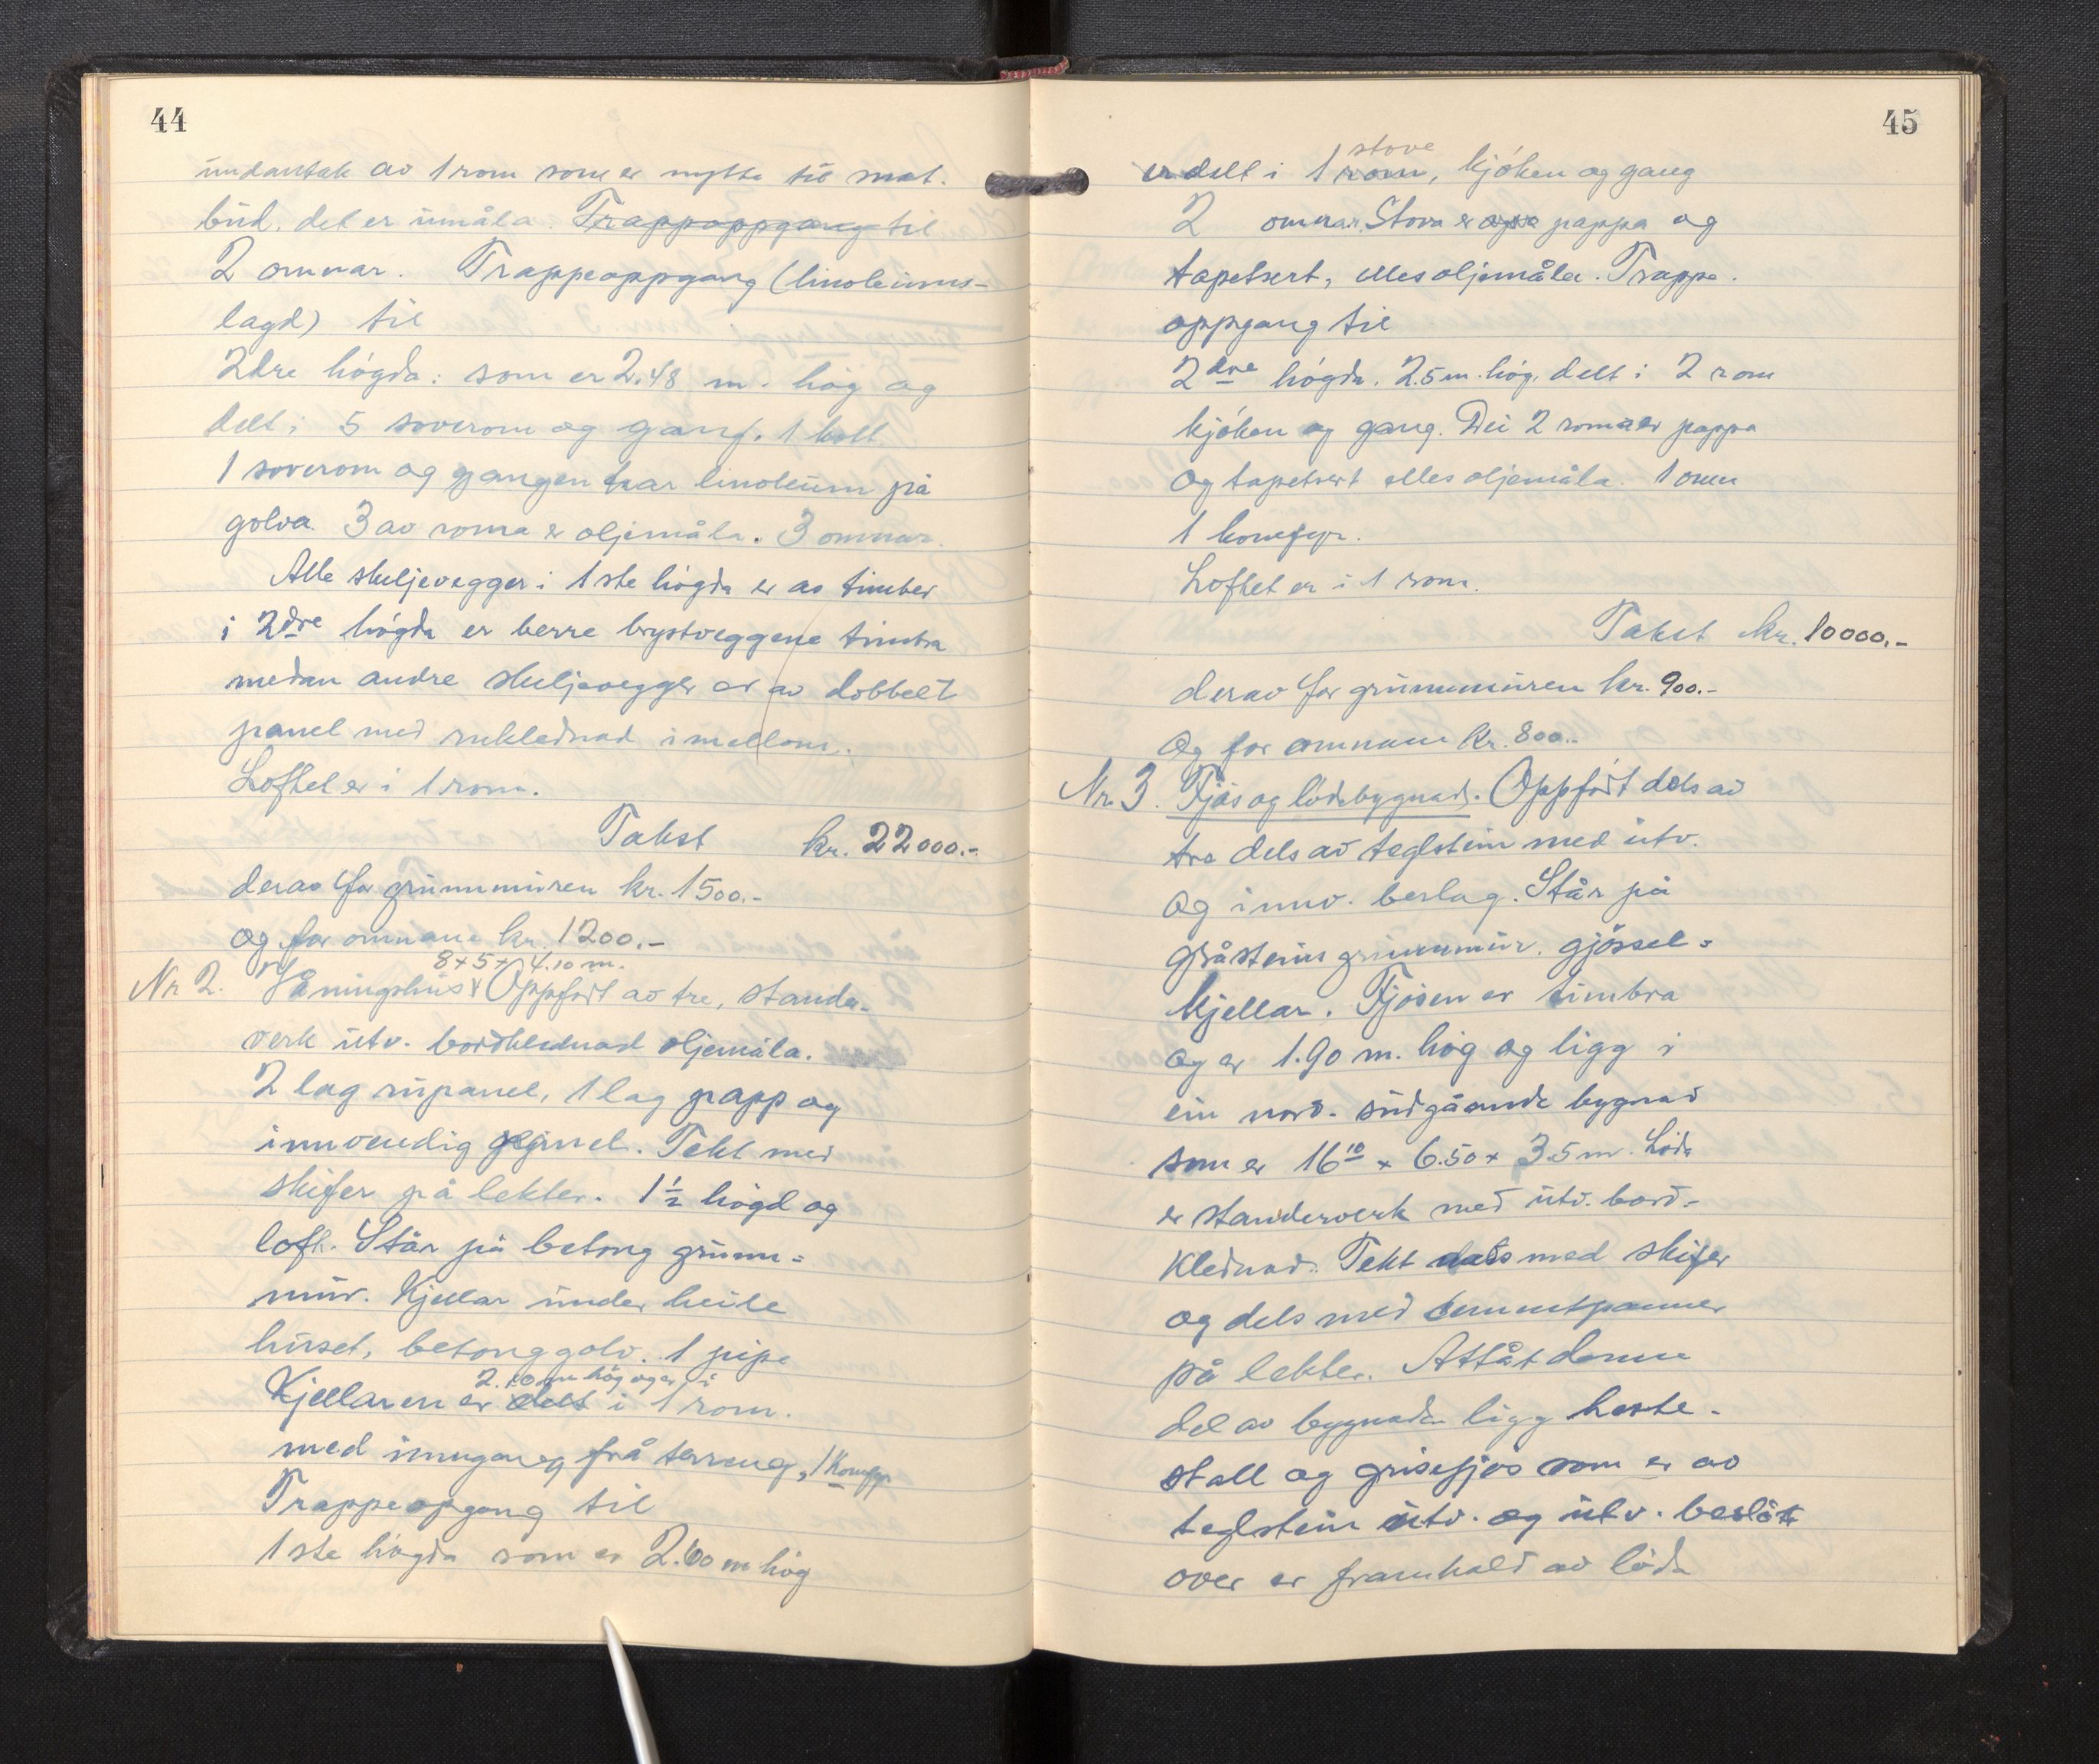 44
undantak av 1 rom som er nytta til mat-
bud. det er umåla. Trappoppgang til
2 omnar. Trappeoppgang (linoleums-
lagd) til
2dre høgda: som er 2.48 m. høg og
delt i 5 soverom og gang. 1 kott
1 soverom og gangen har linoleum på
golva. 3 av roma er oljemåla. 3 omnar.
Alle skiljevegger i 1ste høgda er av timber
i 2dre høgda er berre brystveggene timbra
medan andre skiljevegger er av dobbelt
panel med ruklednad imellom.
Loftet er i 1 rom.
Takst kr. 22000.-
derav for grunnmuren kr. 1500.-
og for omnane kr. 1200.-
8 x 5 x 4.10 m.
Nr 2. Våningshus Oppført av tre, stander-
verk utv. bordklednad oljemåla.
2 lag rupanel, 1 lag papp og
innvendig panel. Tekt med
skifer på lekter. 1½ høgd og
loft. Står på betong grunn=
mur. Kjellar under heile
huset, betonggolv. 1 pipe
2.10 m høg og er i
Kjellaren er delt i 1 rom.
med inngang frå terreng, 1 komfyr
Trappeopgang til
1ste høgda som er 2.60 m høg
45
stove
er delt i 1 rom, kjøken og gang
2 omnar. Stova er pappa og
tapetsert, elles oljemåla. Trappe-
oppgang til
2dre høgda. 2.5 m. høg. delt i 2 rom
kjøken og gang. Dei 2 roma er pappa
og tapetsert elles oljemåla. 1 omn
1 komfyr.
Loftet er i 1 rom.
Takst kr. 10000.-
derav for grunnmuren kr. 900.-
og for omnane kr. 800.-
Nr. 3. Fjøs og lødebygnad. Oppført dels av
tre dels av teglstein med utv.
og innv. beslag. Står på
gråsteins grunnmur. gjøssel=
kjellar. Fjøsen er timbra
og er 1.90 m. høg og ligg i
ein nord-sudgåande bygnad
som er 16.10 x 6.50 x 3.5 m. Løda
er standerverk med utv. bord-
klednad. Tekt dels med skifer
og dels med sementpanner
på lekter. Attåt denne
del av bygnaden ligg heste-
stall og grisefjøs som er av
teglstein utv. og utv. beslått
over er framhald av løda